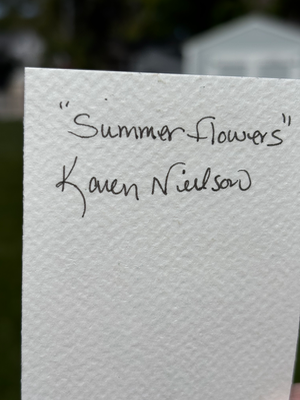 "Summer flowers"
Karen Nielson